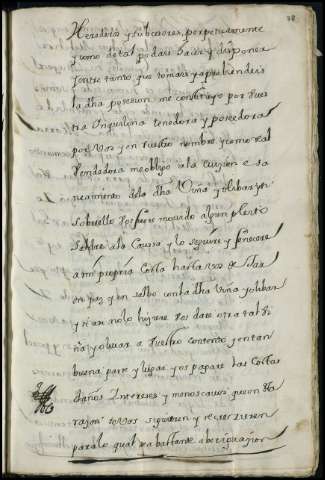 38
Herederos y subcesores, perpetuamente
y como de tal podais hacer y disponer
y entre tanto que tomais y aprehendeis
la dha posesion me constituyo por Vues
tra Ynquilina tenedora y poseedora
por Vos y en Vuestro nombre y como Real
Vendedora me obligo a la Eviçion e sa
neamiento desa dha Viña y olibar y si
sobre ello Vos fuere movido algun pleito
Saldre a la Causa y lo seguire y fenecere
a mi propria Costa hasta Vos de Jar
en paz y en salbo con la dha Viña y olibar
y si asi no lo hiçiere Vos dare otra tal Vi
ña y olivar a Vuestro contento y en tan
buena parte y lugar y os pagare las Costas
daños Yntereses y menoscavos que en Ra
zon Vos siguieren y recrecieren
para lo qual sea bastante aberiguaçion